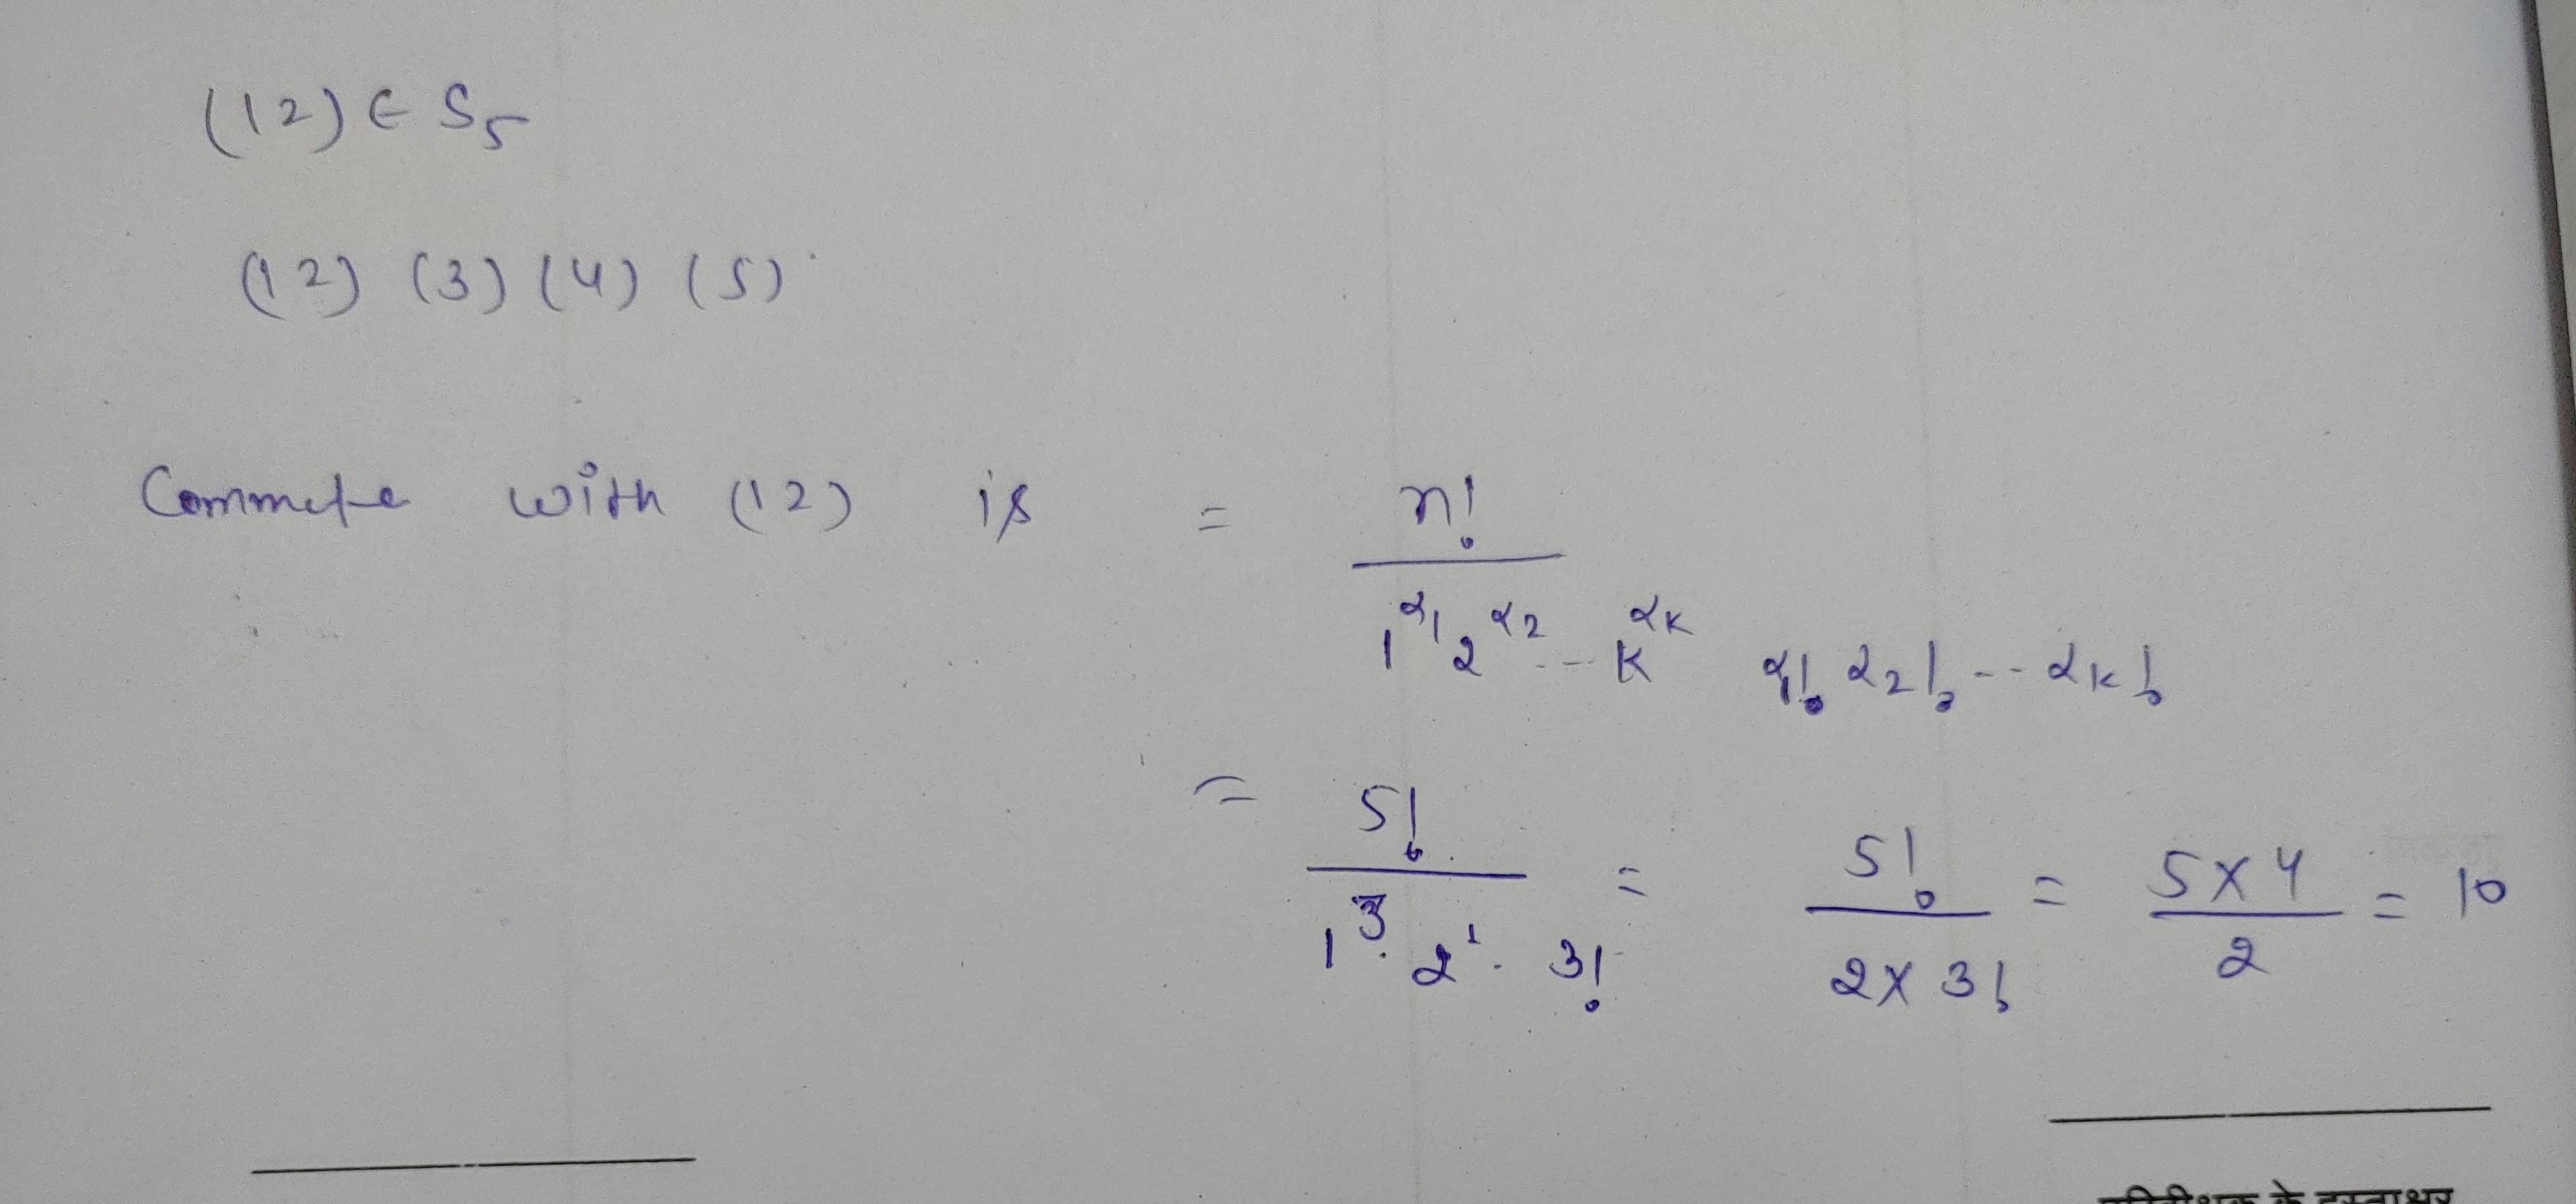 (12) ∈ S5
(12) (3) (4) (5)
Commute with (12) is = n! / 1^α1 2^α2 -- k^αk α1! α2! --- αk!
= 5! / 1^3 . 2^1 . 3! = 5! / 2×3! = 5×4 / 2 = 10
के हस्ताक्षर